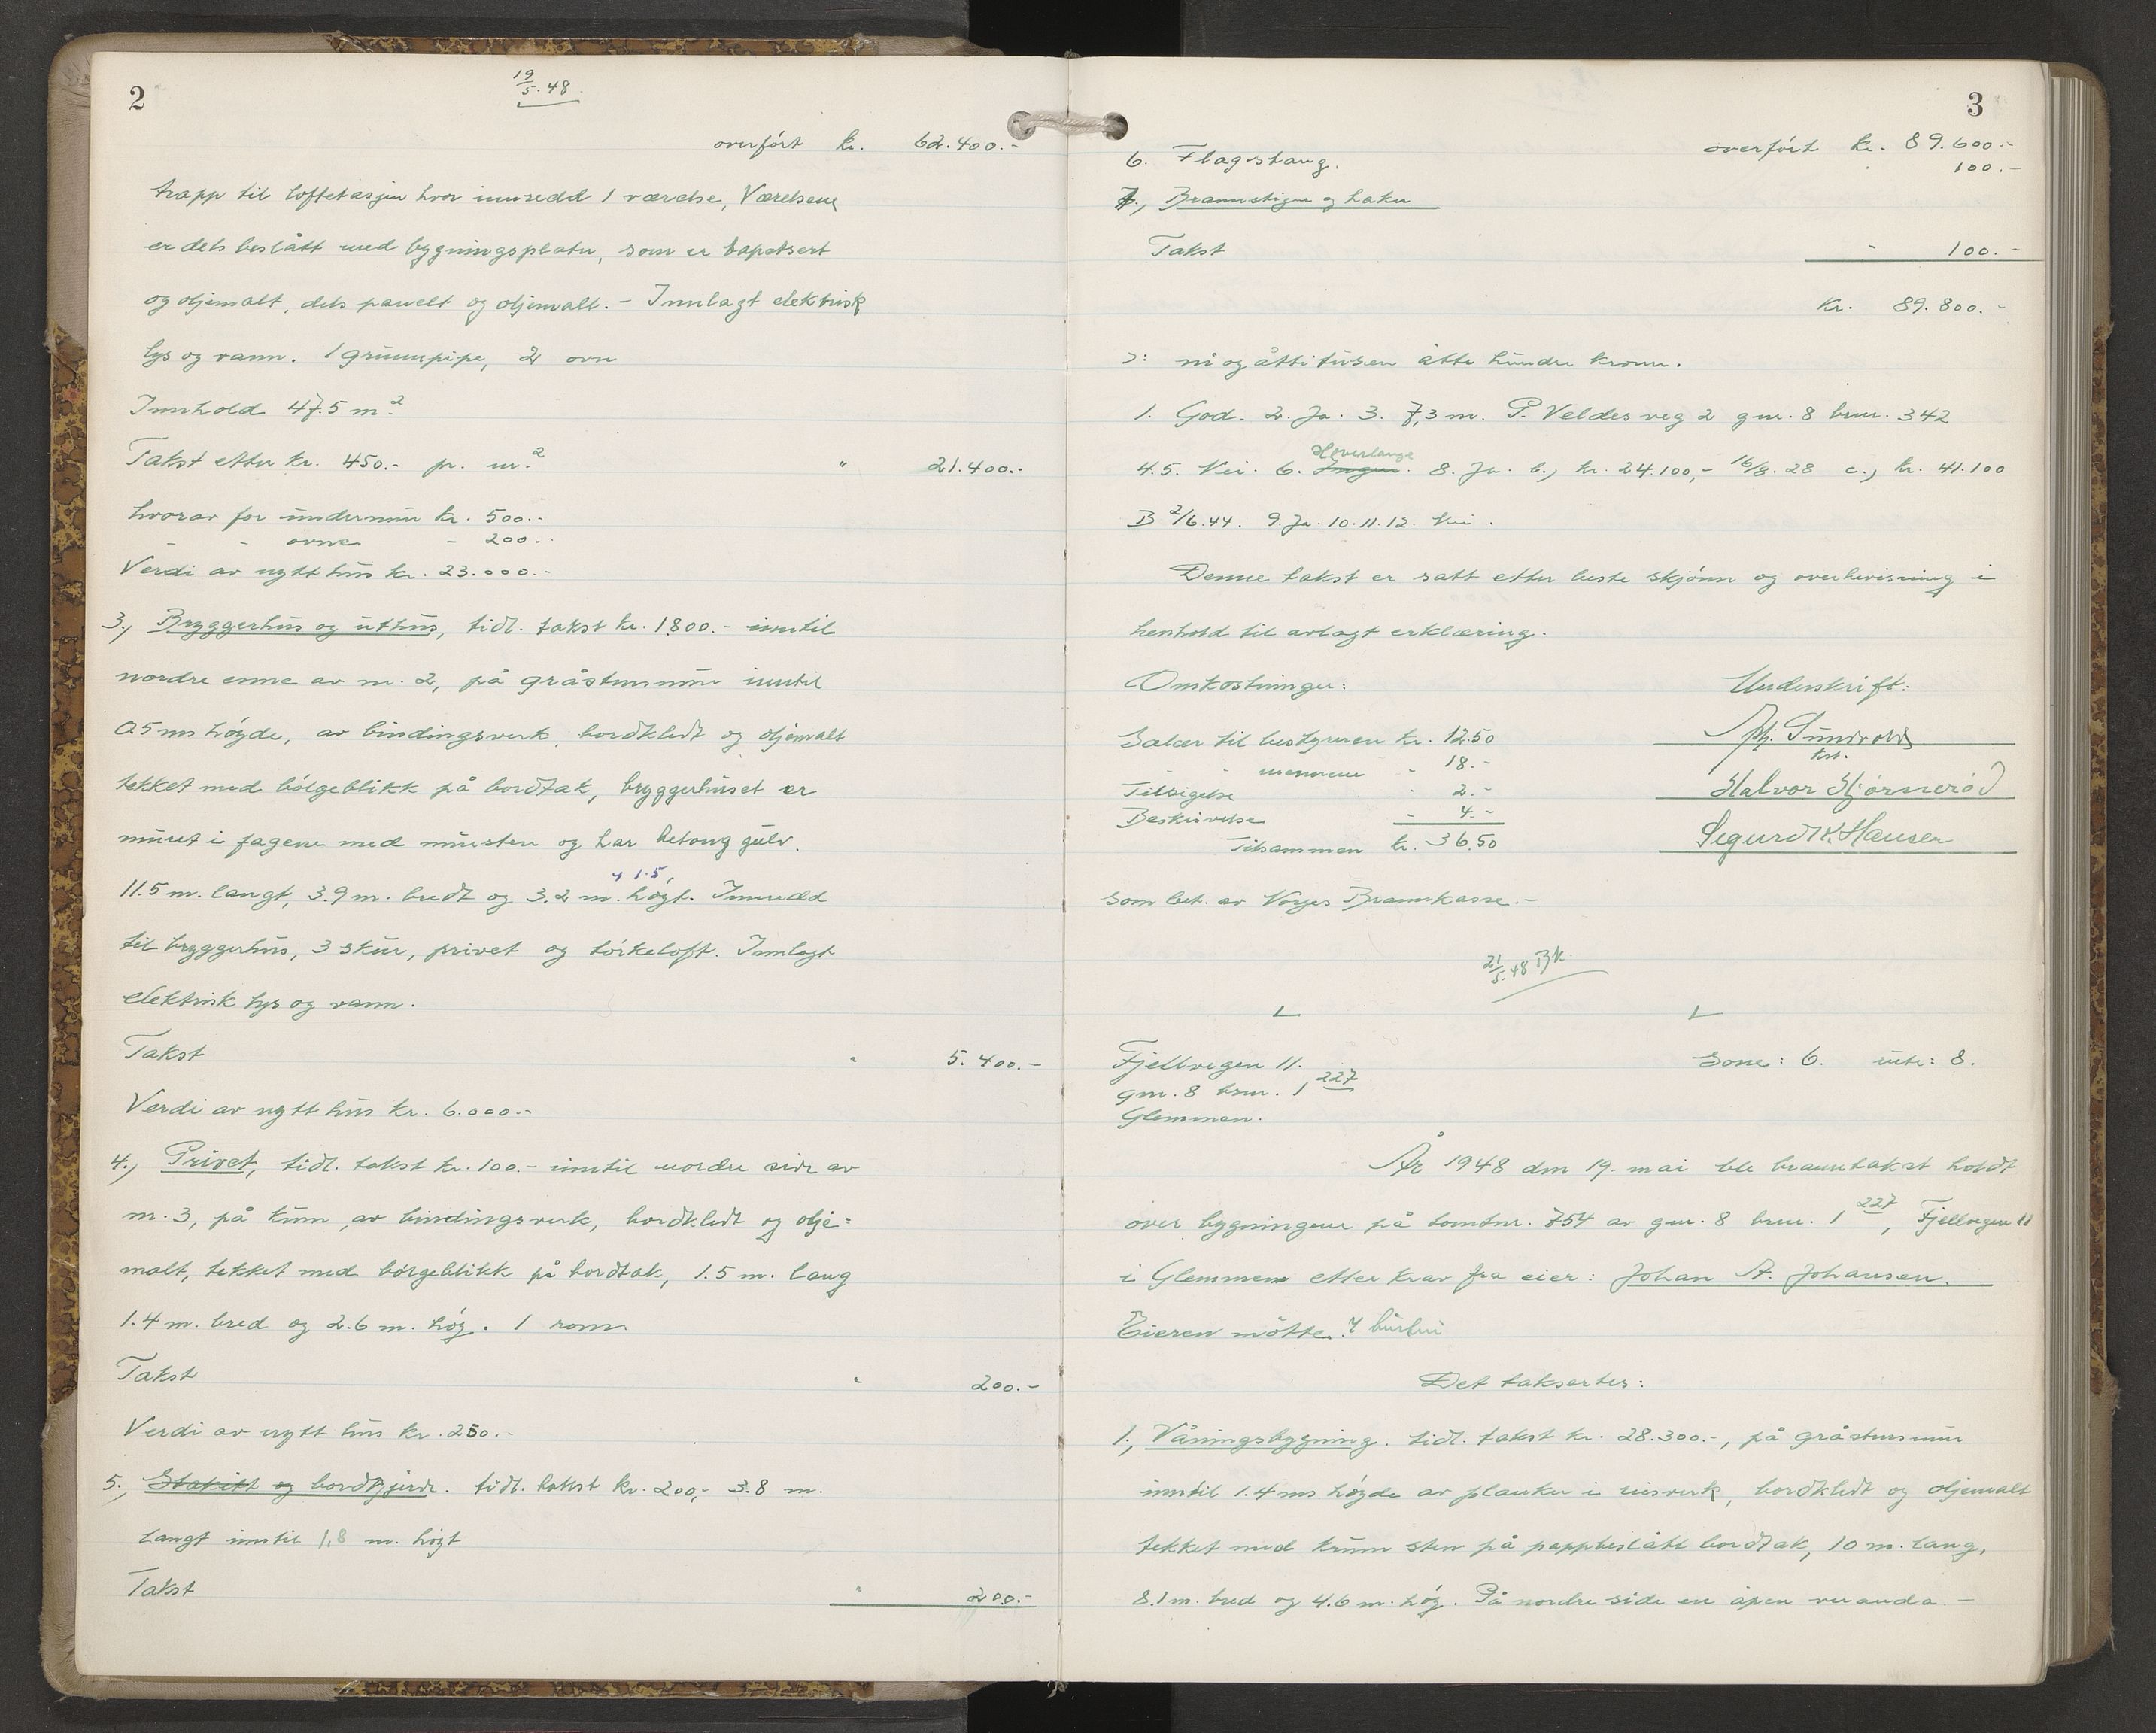 2
19/5.48.
overført kr. 62.400.-
trapp til loftetasjen hvor innredd 1 værelse, Værelsene
er dels beslått med bygningsplater, som er tapetsert
og oljemalt, dels panelt og oljemalt. - Innlagt elektrisk
lys og vann. 1 grunnpipe, 2 ovne
Innhold 47.5 m.²
Takst etter kr. 450.- pr. m.² " 21.400.-
hvorav for undermur kr. 500.-
- - ovne - 200.-
Verdi av nytt hus kr. 23.000.-
3., Bryggerhus og uthus, tidl. takst kr. 1800.- inntil
nordre enne av nr. 2, på gråstensmur inntil
0.5 ms høyde, av bindingsverk, bordkledt og oljemalt
tekket med bølgeblikk på bordtak, bryggerhuset er
muret i fagene med mursten og har betong gulv.
+ 1.5,
11.5 m. langt, 3.9 m. bredt og 3.2 m. høgt. Innredd
til bryggerhus, 3 skur, privet og tørkeloft. Innlagt
elektrisk lys og vann.
Takst " 5.400.-
Verdi av nytt hus kr. 6.000.-
4., Privet, tidl. takst kr. 100.- inntil nordre side av
nr. 3, på kum, av bindingsverk, bordkledt og olje=
malt, tekket med bølgeblikk på bordtak, 1.5 m. lang
1.4 m. bred og 2.6 m. høg. 1 rom
Takst " 200.-
Verdi av nytt hus kr. 250.-
5., Stakitt og bordgjerde. tidl. takst kr. 200,- 3.8 m.
langt inntil 1,8 m. høgt
Takst " 200.-
3
overført kr. 89.600.-
6. Flagstang. - 100.-
7., Brannstiger og haker
Takst - 100.-
kr. 89.800.-
ɔ: ni og åttitusen åtte hundre kroner.
1. God. 2. Ja. 3. 7,3 m. P. Veldes veg 2 gnr. 8 bnr. 342
4.5. Nei. 6. Ingen. Heverlange 8. Ja. b., kr. 24.100,- 16/8.28 c., kr. 41.100
B 2/6.44. 9. Ja. 10.11.12. Nei.
Denne takst er satt etter beste skjønn og overbevisning i
henhold til avlagt erklæring.
Omkostninger: Underskrift:
Salær til bestyreren kr. 12.50
- - mennene - 18.-
Tilsigelse - 2.- Halvor Hjørnerød
Beskrivelse - 4.-
Tilsammen kr. 36.50 Sigurd K. Hansen
som bet. av Norges Brannkasse.-
21/5.48 Bk.
Fjellvegen 11. Sone: 6. rute: 8.
gnr. 8 bnr. 1 227
Glemmen.
År 1948 den 19. mai ble branntakst holdt
over bygningene på tomtnr. 754 av gnr. 8 bnr. 1 227, Fjellvegen 11
i Glemmen etter krav fra eier: Johan A. Johansen.
Eieren møtte.
Det taksertes:
1., Våningsbygning. tidl. takst kr. 28.300.-, på gråstensmur
inntil 1.4 ms høyde av planker i reisverk, bordkledt og oljemalt
tekket med krum sten på pappbeslått bordtak, 10 m. lang,
8.1 m. bred og 4.6 m. høg. På nordre side en åpen veranda -